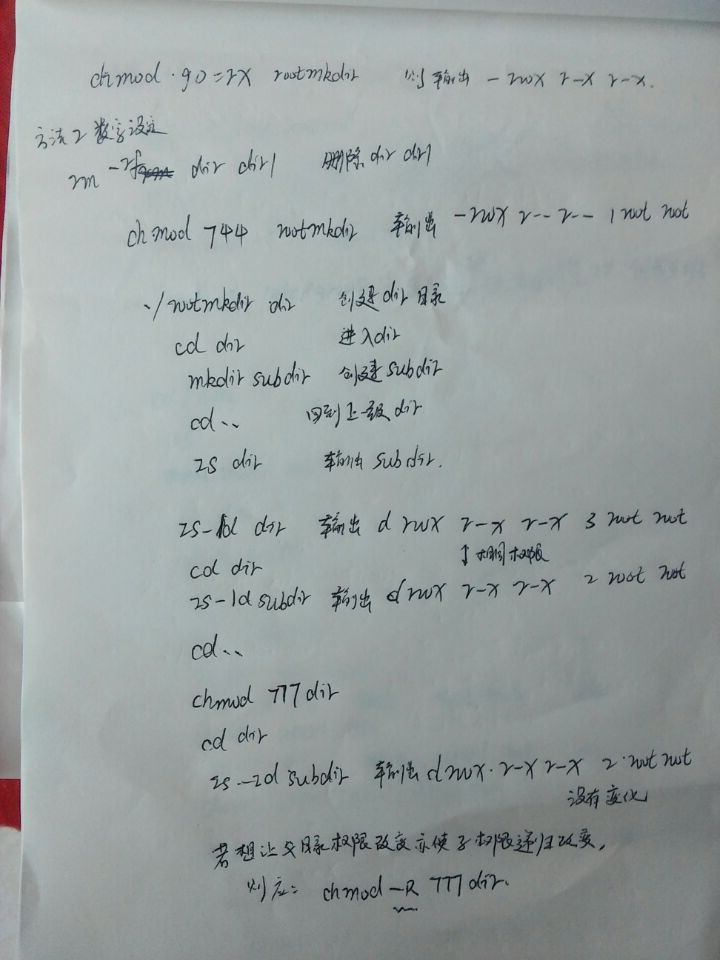 chmod go=rx rootmkdir 则输出 -rwx r-x r-x.
方法2 数字设定
rm -rf dir dir1 删除dir dir1
chmod 744 rootmkdir 输出 -rwx r-- r-- 1 root root
./rootmkdir dir 创建dir目录
cd dir 进入dir
mkdir subdir 创建subdir
cd.. 回到上一级dir
ls dir 输出 subdir.
ls-ld dir 输出 d rwx r-x r-x 3 root root
↕相同权限
cd dir
ls-ld subdir 输出 d rwx r-x r-x 2 root root
cd..
chmod 777 dir
cd dir
ls -ld subdir 输出 d rwx r-x r-x 2 root root
没有变化
若想让父目录权限改变亦使子权限递归改变,
则应: chmod -R 777 dir.